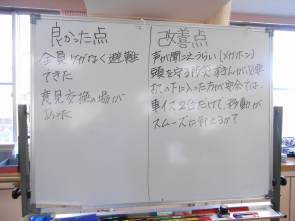 良かった点
全員けがなく避難
できた
意見交換の場が
あった
改善点
声が聞こえづらい(メガホン)
頭を守る防災ずきんが必要
机の下に入った方が安全では
車イス2台だけで、移動が
スムーズに行えるかて